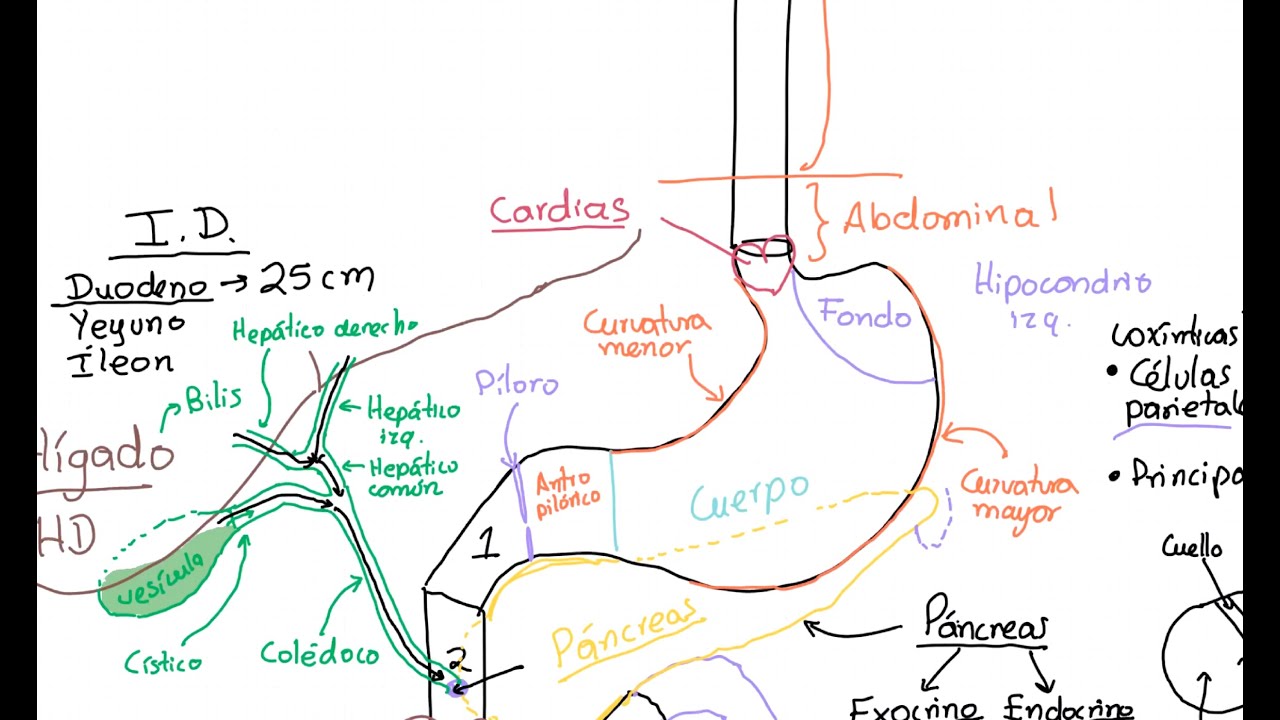 Cardias
Abdominal
I.D.
Duodeno → 25 cm
Yeyuno
Íleon
Hepático derecho
Bilis
Hepático
izq.
Hepático
común
Hígado
HD
vesícula
Cístico
Colédoco
Píloro
Curvatura
menor
Fondo
Hipocondrio
izq.
Antro
pilórico
Cuerpo
Curvatura
mayor
1
2
Páncreas
Páncreas
Exocrino Endocrino
• Células
parietal
• Principa
Cuello